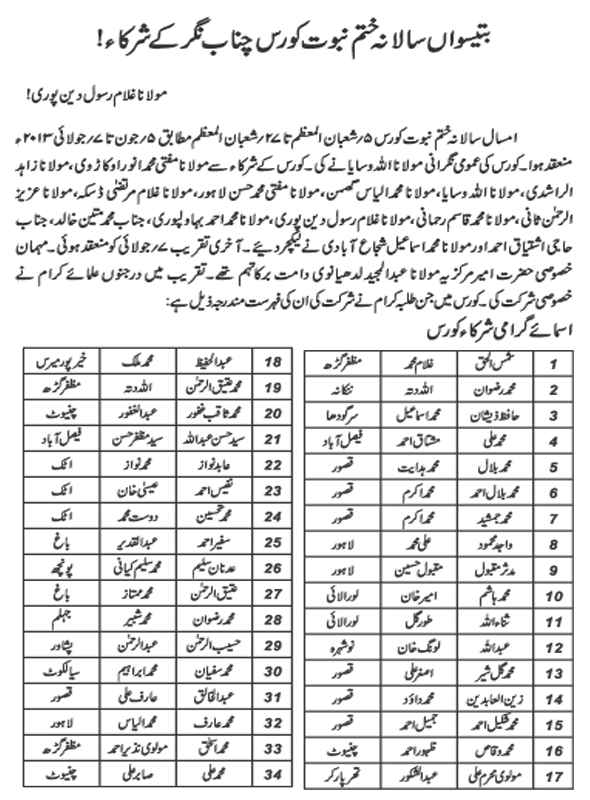 بتیسواں سالانہ ختم نبوت کورس چناب نگر کے شرکاء!
مولانا غلام رسول دین پوری!
امسال سالانہ ختم نبوت کورس ۵؍شعبان المعظم تا ۲۷؍شعبان المعظم مطابق ۵؍جون تا ۷؍جولائی ۲۰۱۳ء
منعقد ہوا۔ کورس کی عمومی نگرانی مولانا اللہ وسایا نے کی۔ کورس کے شرکاء سے مولانا مفتی محمد انور اوکاڑوی، مولانا زاہد
الراشدی، مولانا اللہ وسایا، مولانا محمد الیاس گھمن، مولانا مفتی محمد حسن لاہور، مولانا غلام مرتضٰی ڈسکہ، مولانا عزیز
الرحمٰن ثانی، مولانا محمد قاسم رحمانی، مولانا غلام رسول دین پوری، مولانا محمد احمد بہاولپوری، جناب محمد متین خالد، جناب
حاجی اشتیاق احمد اور مولانا محمد اسماعیل شجاع آبادی نے لیکچر دیئے۔ آخری تقریب ۷؍جولائی کو منعقد ہوئی۔ مہمان
خصوصی حضرت امیر مرکزیہ مولانا عبدالمجید لدھیانوی دامت برکاتہم تھے۔ تقریب میں درجنوں علمائے کرام نے
خصوصی شرکت کی۔ کورس میں جن طلبہ کرام نے شرکت کی ان کی فہرست مندرجہ ذیل ہے:
اسمائے گرامی شرکاء کورس
1 شمس الحق غلام محمد مظفرگڑھ
2 محمد رضوان اللہ دتہ ننکانہ
3 حافظ ذیشان محمد اسماعیل سرگودھا
4 محمد علی مشتاق احمد فیصل آباد
5 محمد بلال محمد ہدایت قصور
6 محمد بلال احمد محمد اکرم قصور
7 محمد جمشید محمد اکرم قصور
8 واجد محمود علی محمد لاہور
9 مدثر مقبول مقبول حسین لاہور
10 محمد ہاشم امیر خان لورالائی
11 ثناء اللہ طور گل لورالائی
12 عبداللہ لونگ خان نوشہرہ
13 محمد گل شیر اصغر علی قصور
14 زین العابدین محمد داؤد قصور
15 محمد شکیل احمد جمیل احمد قصور
16 محمد وقاص ظہور احمد چنیوٹ
17 مولوی محرم علی عبدالشکور تھرپارکر
18 عبدالحفیظ محمد ملک خیرپور میرس
19 محمد عتیق الرحمٰن اللہ دتہ مظفرگڑھ
20 محمد ثاقب غفور عبدالغفور چنیوٹ
21 سید حسن عبداللہ سید مظفر حسن فیصل آباد
22 عابد نواز محمد نواز اٹک
23 نفیس احمد عیسیٰ خان اٹک
24 محمد تحسین دوست محمد اٹک
25 سفیر احمد عبدالقدیر باغ
26 عدنان سلیم محمد سلیم کیانی پونچھ
27 عتیق الرحمٰن محمد ممتاز باغ
28 محمد رضوان محمد شبیر جہلم
29 حسیب الرحمٰن عبدالرحمٰن پشاور
30 محمد سفیان محمد ابراہیم سیالکوٹ
31 عبدالخالق عارف علی قصور
32 محمد عارف محمد الیاس لاہور
33 محمد اسحٰق مولوی نذیر احمد مظفرگڑھ
34 محمد علی صابر علی چنیوٹ